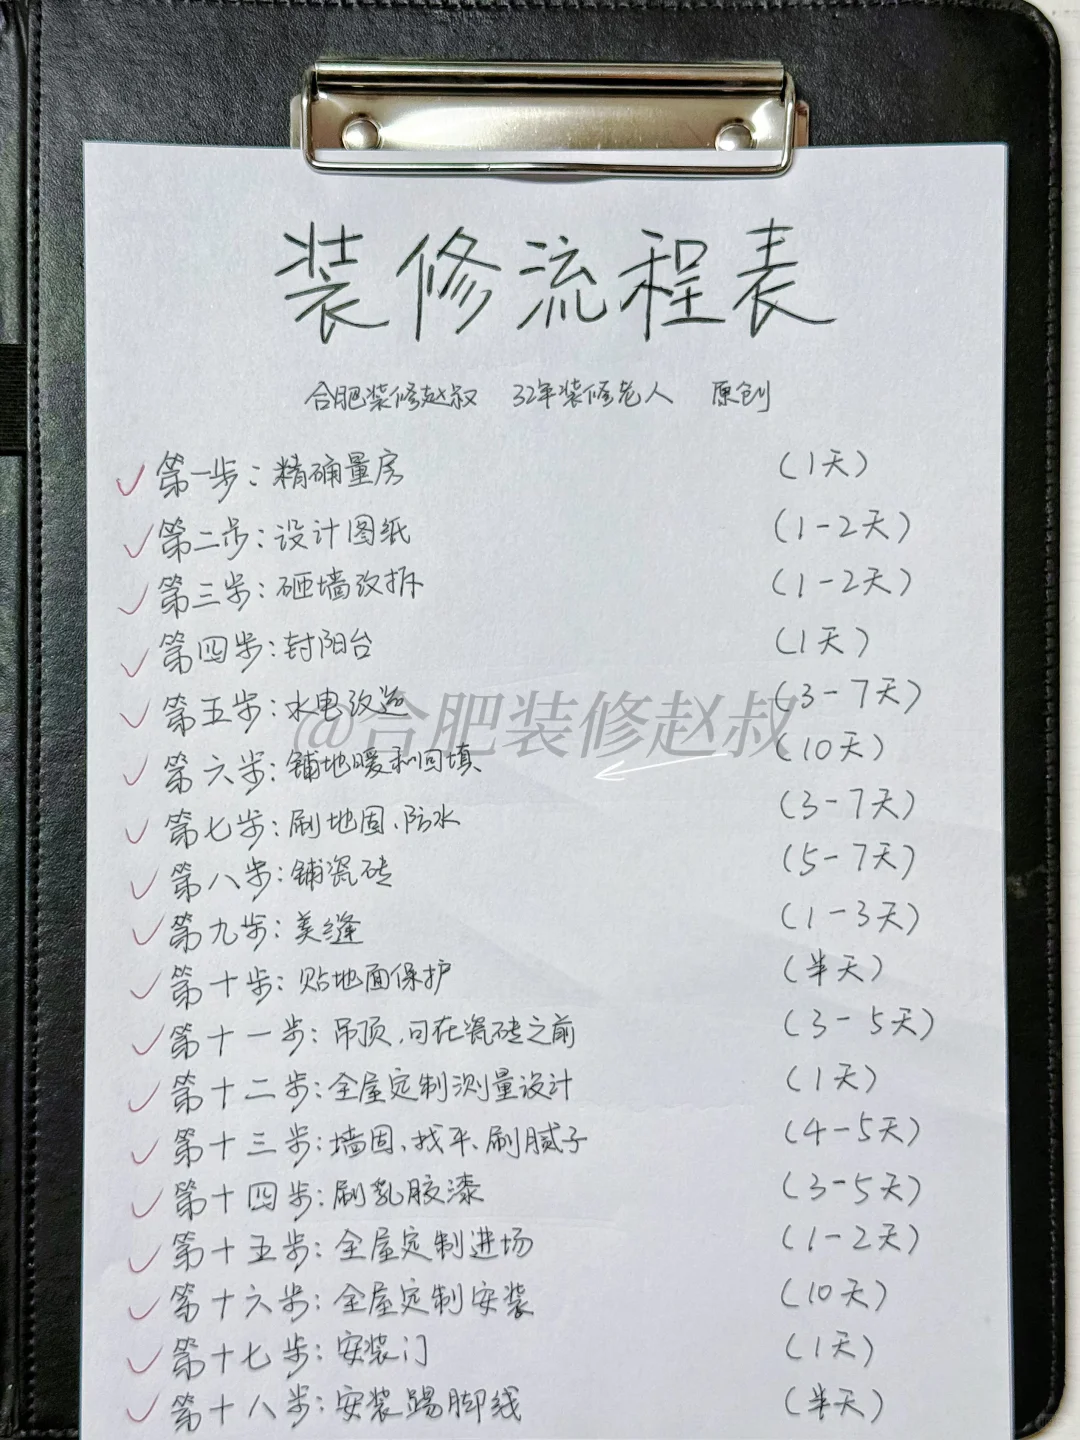 装修流程表
合肥装修赵叔 32年装修老人 原创
第一步：精确量房 （1天）
第二步：设计图纸 （1-2天）
第三步：砸墙改拆 （1-2天）
第四步：封阳台 （1天）
第五步：水电改造 （3-7天）
@合肥装修赵叔
第六步：铺地暖和回填 （10天）
第七步：刷地固、防水 （3-7天）
第八步：铺瓷砖 （5-7天）
第九步：美缝 （1-3天）
第十步：贴地面保护 （半天）
第十一步：吊顶，可在瓷砖之前 （3-5天）
第十二步：全屋定制测量设计 （1天）
第十三步：墙固、找平、刷腻子 （4-5天）
第十四步：刷乳胶漆 （3-5天）
第十五步：全屋定制进场 （1-2天）
第十六步：全屋定制安装 （10天）
第十七步：安装门 （1天）
第十八步：安装踢脚线 （半天）